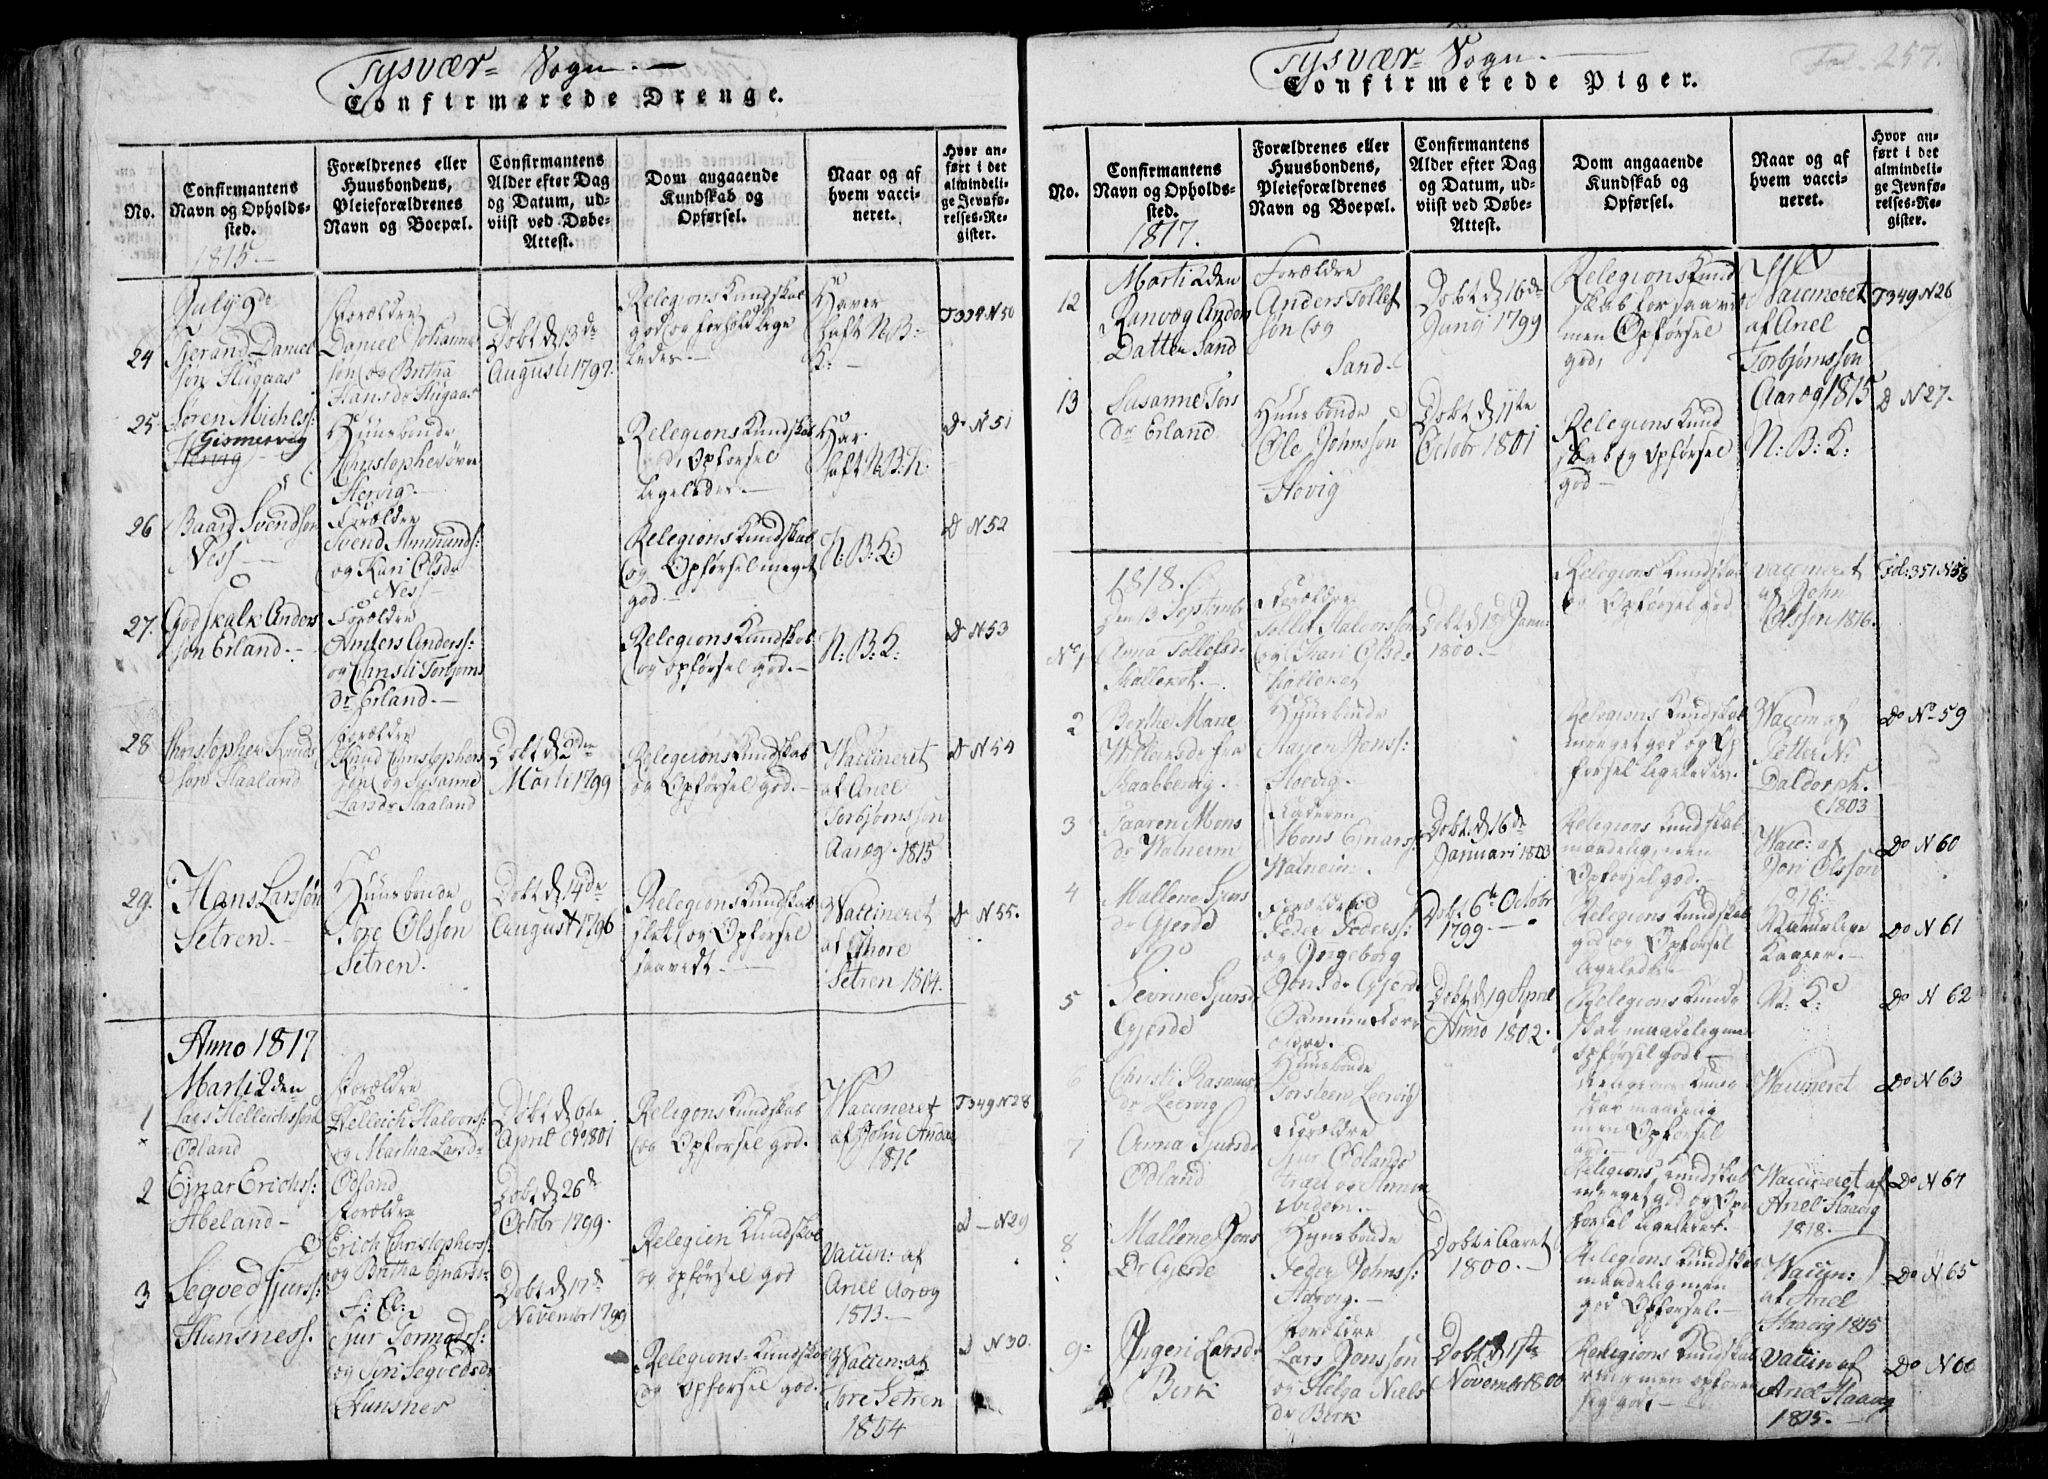 Tysvær Sogn. —
Confirmerede Drenge.
No.
Confirmantens
Navn og Opholds-
sted.
1815. —
Forældrenes eller
Huusbondens,
Pleieforældrenes
Navn og Boepæl.
Confirmantens
Alder efter Dag
og Datum, ud-
viist ved Døbe-
Attest.
Dom angaaende
Kundskab og
Opførsel.
Naar og af
hvem vacci-
neret.
Hvor an-
ført i det
almindeli-
ge Jevnfø-
relses-Re-
gister.
July 9de
24
Daniel
søn Hugaas
Forældre
Daniel Johannes
søn og Britha
Hansdr Hugaas
Døbt d 13de
Augusti 1797.
Relegions Kundskab
god og forhold lige
ledes. —
Haver
haft N: B:
K: —
F 334 N 50
25
Søren Michelss:
Gismervig
Hervig
Huusbonde
Christopher øvre
Hervig. —
Relegions Kundskab
god, Opførsel
ligeledes. —
Har
haft N: B: K:
Do N 51
26
Baard Svendsøn
Ness —
Forældre
Svend Amunds:
og Kari Olsdr
Ness —
Relegions Kundskab
og Opførsel meget
god. —
N: B: K:
Do N 52
27.
Godskalk Anders
søn Erland. —
Forældre
Anders Anderss:
og Christi Torbjørns
dr Erland. —
Relegions Kundskab
og opførsel god. —
N: B: K:
Do N 53
28
Christopher Knuds
søn Haaland
Forældre
Knud Christophers
søn og Susanne
Larsdr Haaland
Døbt d 2den
Marti 1799
Relegions Kundskab
og Opførsel god. —
Vaccineret
af Anel
Torbjørnssøn
Aarøg 1815
Do N 54
29.
Hans Larssøn
Setren. —
Huusbonde
Tore Olssøn
Setren.
Døbt d 14de
August 1796
Relegions Kundskab
slet og Opførsel
saavidt. —
Vaccineret
af Thore
Setren 1814.
Do N 55.
Anno 1817
Marti 2den
1
Lars Helleichssøn
Ødland
Forældre
Helleich Halvors:
og Martha Larsdr
Ødland
Døbt d 6te
April 1801
Relegions Kundskab
og Opførsel god. —
Vaccineret
af John Anda
1816
F 349 N 28
2
Ejnar Erichss:
Abeland —
Forældre
Erich Christophers:
og Britha Ejnarsdr
Døbt d 26de
Octobr 1799.
Relegion Kundskab
og opførsel god
Vaccin: af
Anel Aarøg
1813. —
d — N 29
3
Segved Sjurss:
Hunsness.
Sjur Tormodss:
og Siri Segvedsdr
Hunsnes
Døbt d 17de
Novembr 1799
Relegions-Kundskab
og Opførsel god.
Vaccin: af
Tore Setren
1804
d N 30.
Tysvær Sogn. —
Fol. 257.
Confirmerede Piger.
No.
Confirmantens
Navn og Opholds-
sted.
1817.
Forældrenes eller
Huusbondens,
Pleieforældrenes
Navn og Boepæl.
Confirmantens
Alder efter Dag
og Datum, ud-
viist ved Døbe-
Attest.
Dom angaaende
Kundskab og
Opførsel.
Naar og af
hvem vacci-
neret.
Hvor an-
ført i det
almindeli-
ge Jevnfø-
relses-Re-
gister.
12
Marti 2den
Ranveg Anders
Datter Sand
Forældre
Anders Tollef
søn og
Sand. —
Døbt d 16de
Juni 1799
Relegions Kund
skab for saavidt
men Opførsel
god,
Vaccineret
af Anel
Torbjørnssøn
Aarøg 1815
F 349 N 26
13
Susanne Tors
Dr Erland
Huusbonde
Ole Johnssøn
Høvig
Døbt d 11te
Octobr 1801
Relegions Kund
skab og Opførsel
god —
N: B: K:
Do N 27.
1818.
Den 13 Septembr
No 1
Anna Tollefsdr
Forældre
Tollef Halvorssøn
og Kari Olsdr
Døbt d 18 Janu:
1800. —
Relegions Kundskab
og Opførsel god
vaccineret
af John
Olssøn 1816.
Fol: 351 N 58
2
Berthe Marie
Willumsdr fra
Huusbonde
Hovig.
Relegions Kundskab
meget god og Op
førsel ligeledes.
Vaccin af
Petter N:
Daldorph.
1803
Do No 59
3
Taaren Mons
dr Watneim
Faderen
Mons Ejnars:
Watneim.
Døbt d 16de
Januari 1803
Relegions Kundskab
maadelig, men
Opførsel god. —
Vacc: af
Jon Olssøn
816.
Do N 60
4
Mallene Sjurs
dr Gjerde
Peder Peders:
og Ingeborg
Jonsdr Gjerde
Døbt 6te Octobr
1799. —
Relegions Kundskab
god og Opførsel
ligeledes
Naturlige
Kaaper. —
Do N 61
5
Sevrine Sjursdr
Gjerde
Døbt d 19 April
Anno 1802.
Relegions Kund
skab maadelig men
Opførsel god. —
N: K:
Do N 62
6
Christi Rasmus
dr Leervig
Huusbonde
Torsteen Leervig
Relegions Kund
skab maadelig
men Opførsel
god. —
Vaccineret
Do N 63
7
Anna Sjursdr
Ødland
Forældre
Sjur Ødland
ibidem. —
Relegions Kundskab
meget god og Op
førsel ligeledes. —
Vaccineret af
Anel Haavig
1818. —
Do N 64
8
Mallene Jons
Dr Gjerde
Huusbonde
Peder Johns:
Haavig. —
Døbt i Aaret
1800. —
Relegions Kundskab
maadelig men
god Opførsel. —
Vaccin:
af Anel
Haavig 1815
Do N 65
9.
Ingeri Larsdr
Birk
Forældre
Lars Jonssøn
og Helga Niels
dr Birk
Døbt d 1ste
Novembr 1800
Relegions Kundskab
ring men opfører
sig godt —
Vaccin af
Anel Haavig
1815. —
Do N 66